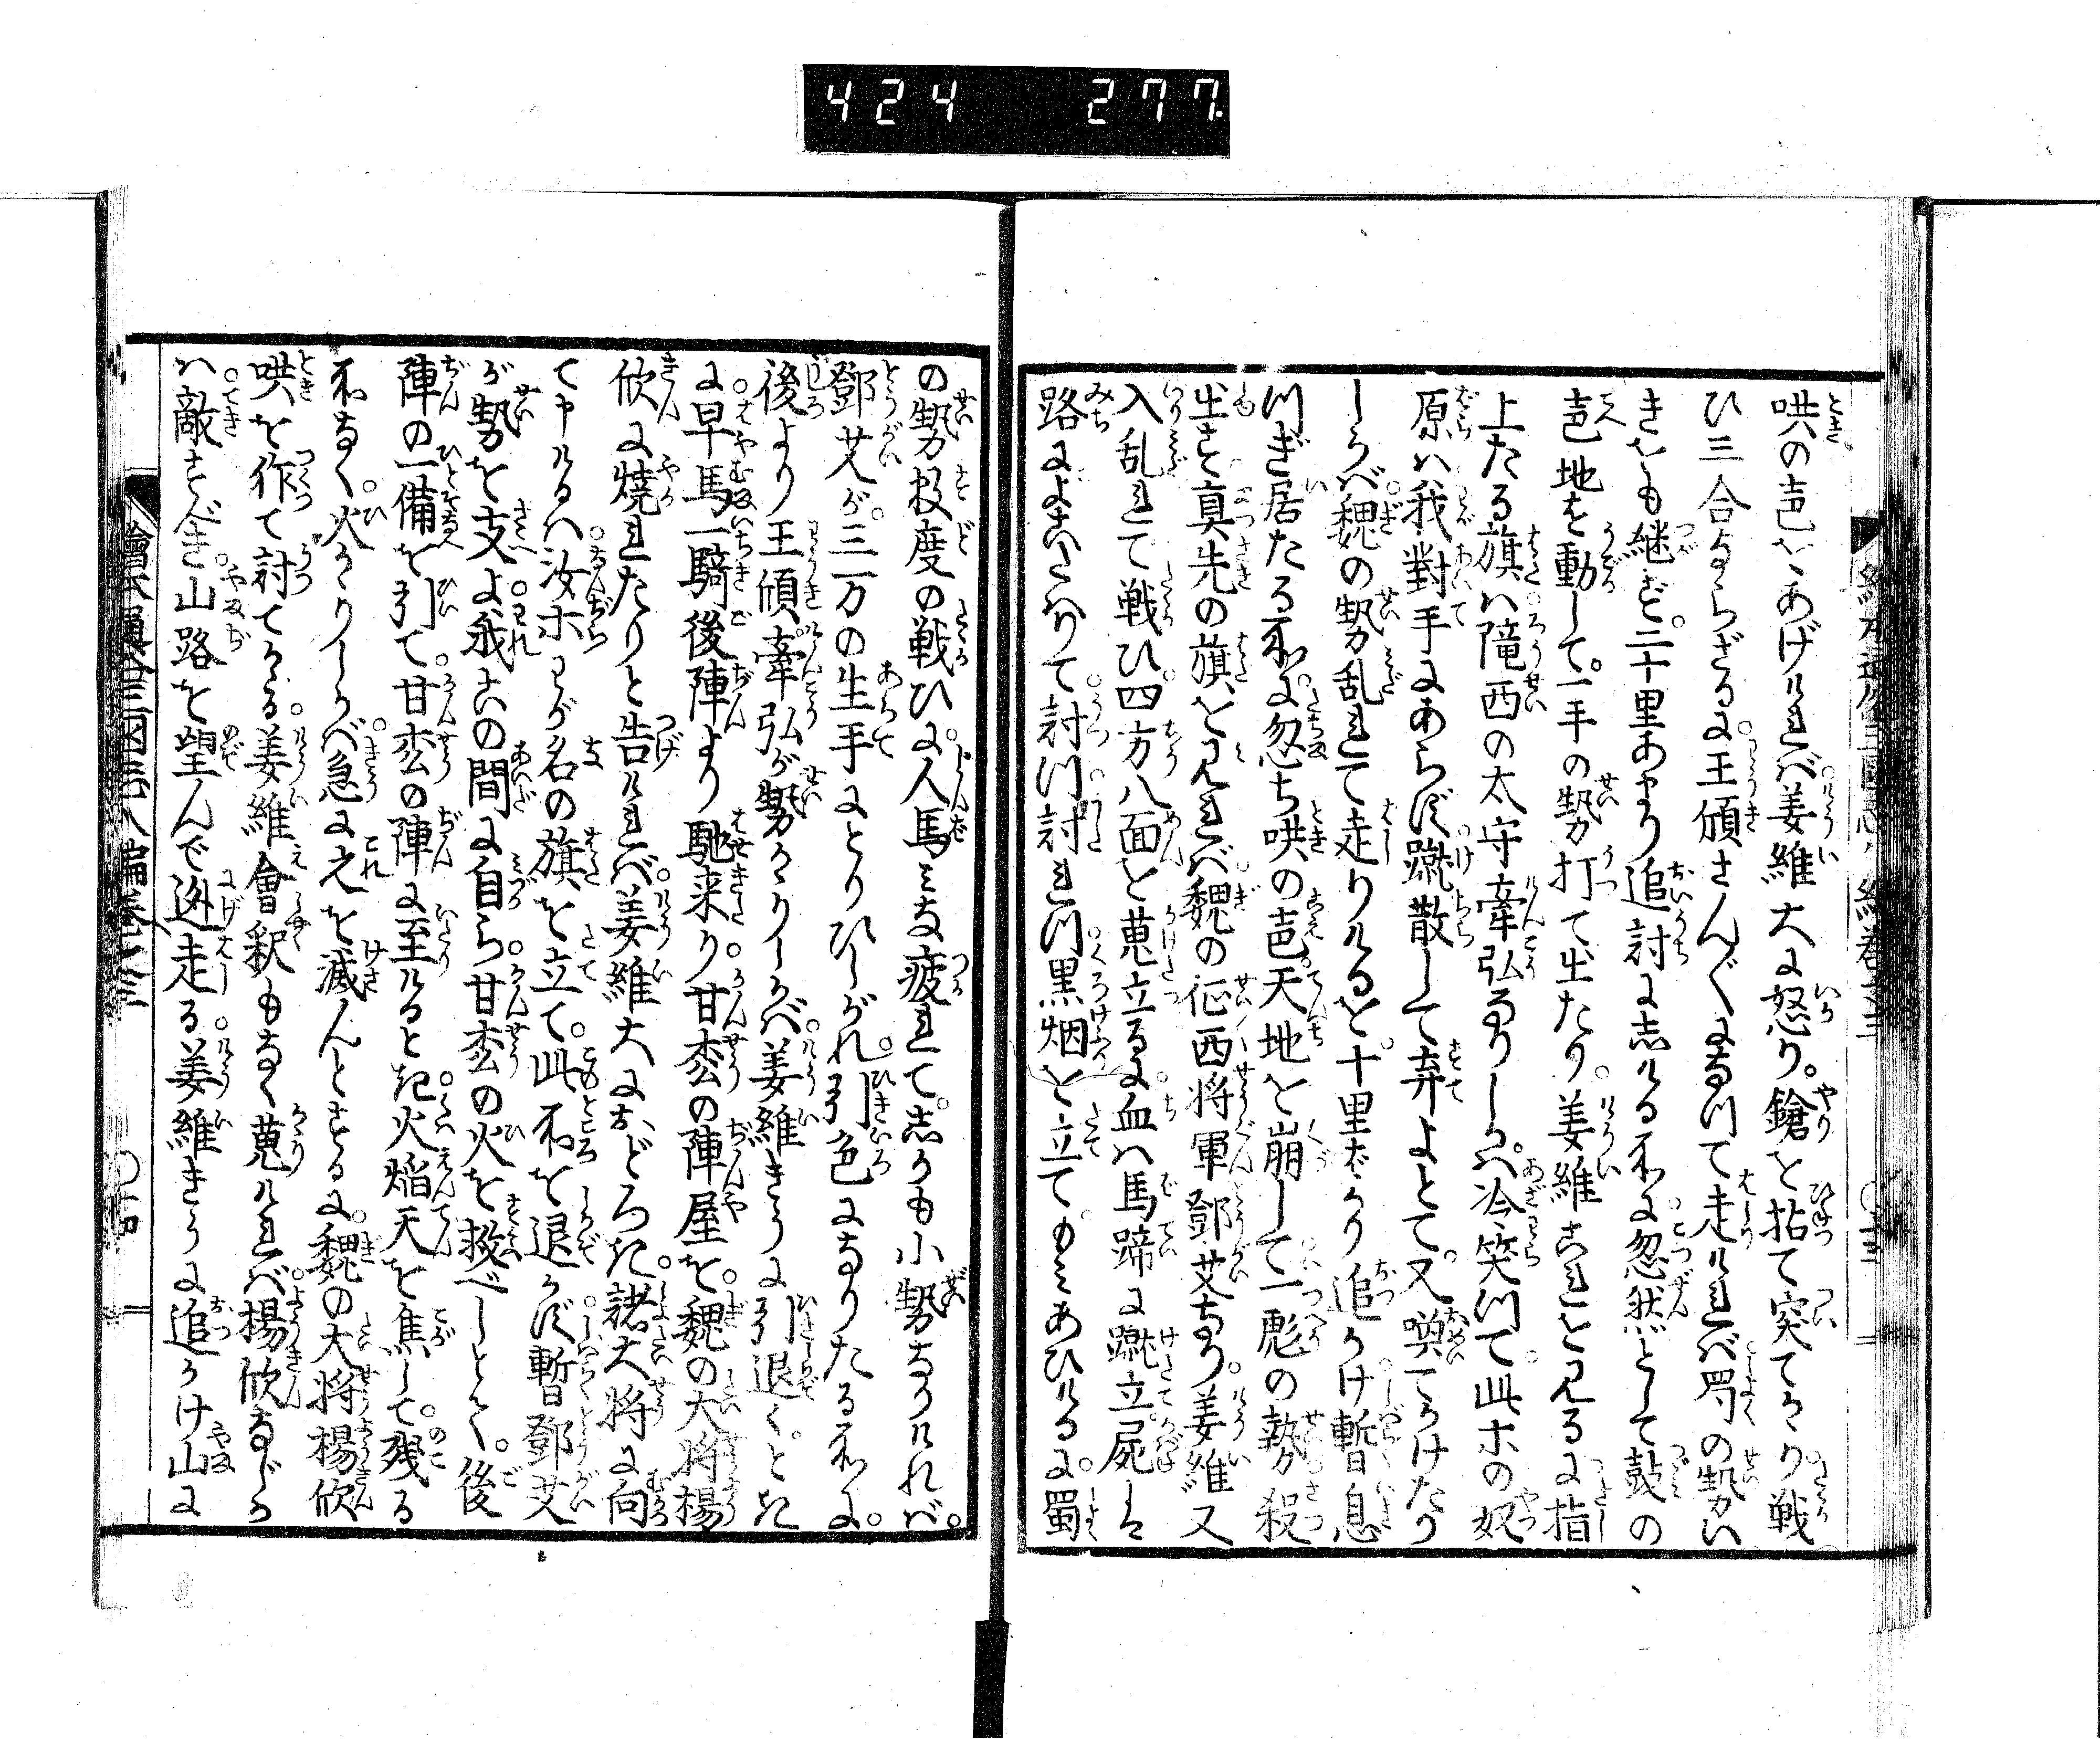 424 277
哄の声をあげければ姜維大に怒り。鎗を拈て突てかゝり戦
ひ三合ならざるに。王頎さん〴〵になつて走れば蜀の勢ハ
きをも継ず。二十里あまり追討にしける所に忽然として鼓の
声地を動して。一手の勢打て出たり。姜維これを見るに指
上たる旗ハ隴西の太守牽弘なりしかバ冷笑つて。此ホの奴
原ハ我對手にあらず蹴散して弃よとて。又喚てかけたり
しかバ。魏の勢乱れて走りけるを。十里ばかり追かけ暫く息
つぎ居たる所に。忽ち哄の声天地を崩して一彪の勢殺
出す真先の旗を見れバ。魏の征西将軍鄧艾なり。姜維又
入乱れて戦ひ。四方八面を蒐立るに血ハ馬蹄に蹴立。屍ハ
路によこたハりて討つ討れつ黒烟を立て。もミあひけるに。蜀
の勢数度の戦ひに。人馬ミな疲れて。しかも小勢なりけれバ。
鄧艾が。三万の生手にとりひしがれ。引色になりたる所に。
後より王頎。牽弘が勢かゝりしかバ。姜維きうに引退くとき
に。早馬一騎後陣より馳来り。甘枩の陣屋を。魏の大将楊
欣に焼れたりと告けれバ。姜維大におどろき。諸大将に向
て申けるハ。汝ホわが名の旗を立て。此所を退かず暫く鄧艾
が勢を支よ。我この間に自ら。甘枩の火を救べしとて。後
陣の一備を引て。甘枩の陣に至けると。火焔天を焦して。残る
所なく。火かゝりしかバ。急に之を滅んとするに。魏の大将楊欣
哄を作て討てかゝる。姜維會釈もなく蒐けれバ。楊欣ながら
ハ。敵すべき。山路を望んで迯走る。姜維きうに追かけ山に